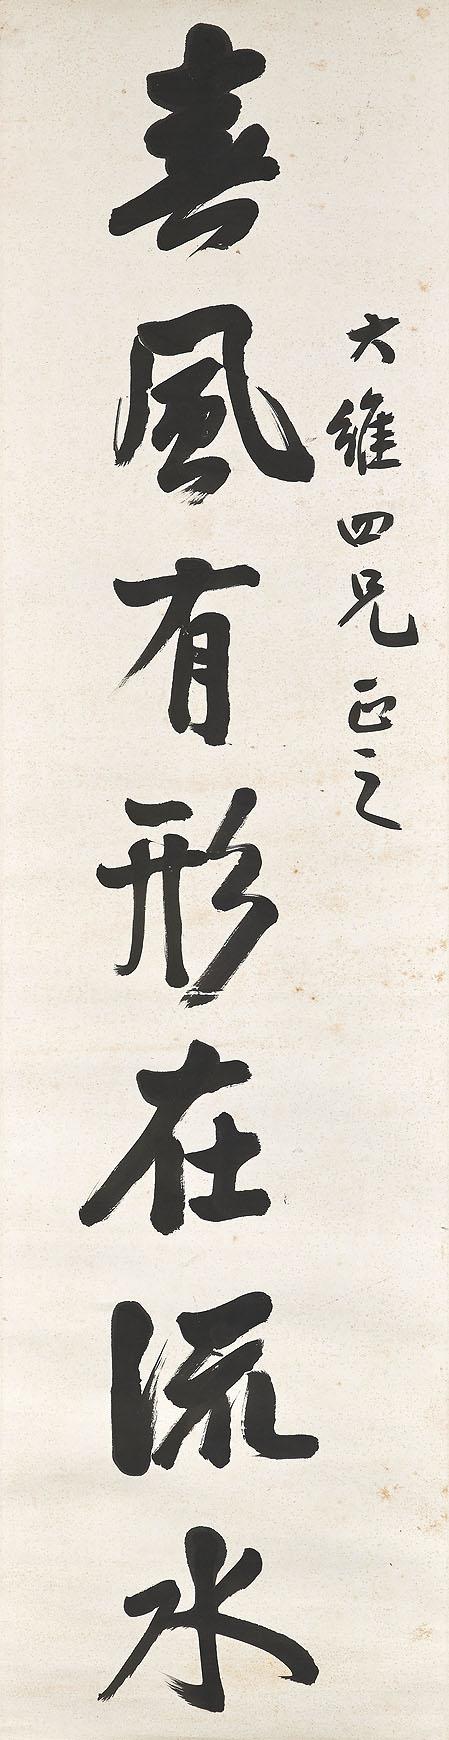 大維四兄正之
春風有形在流水